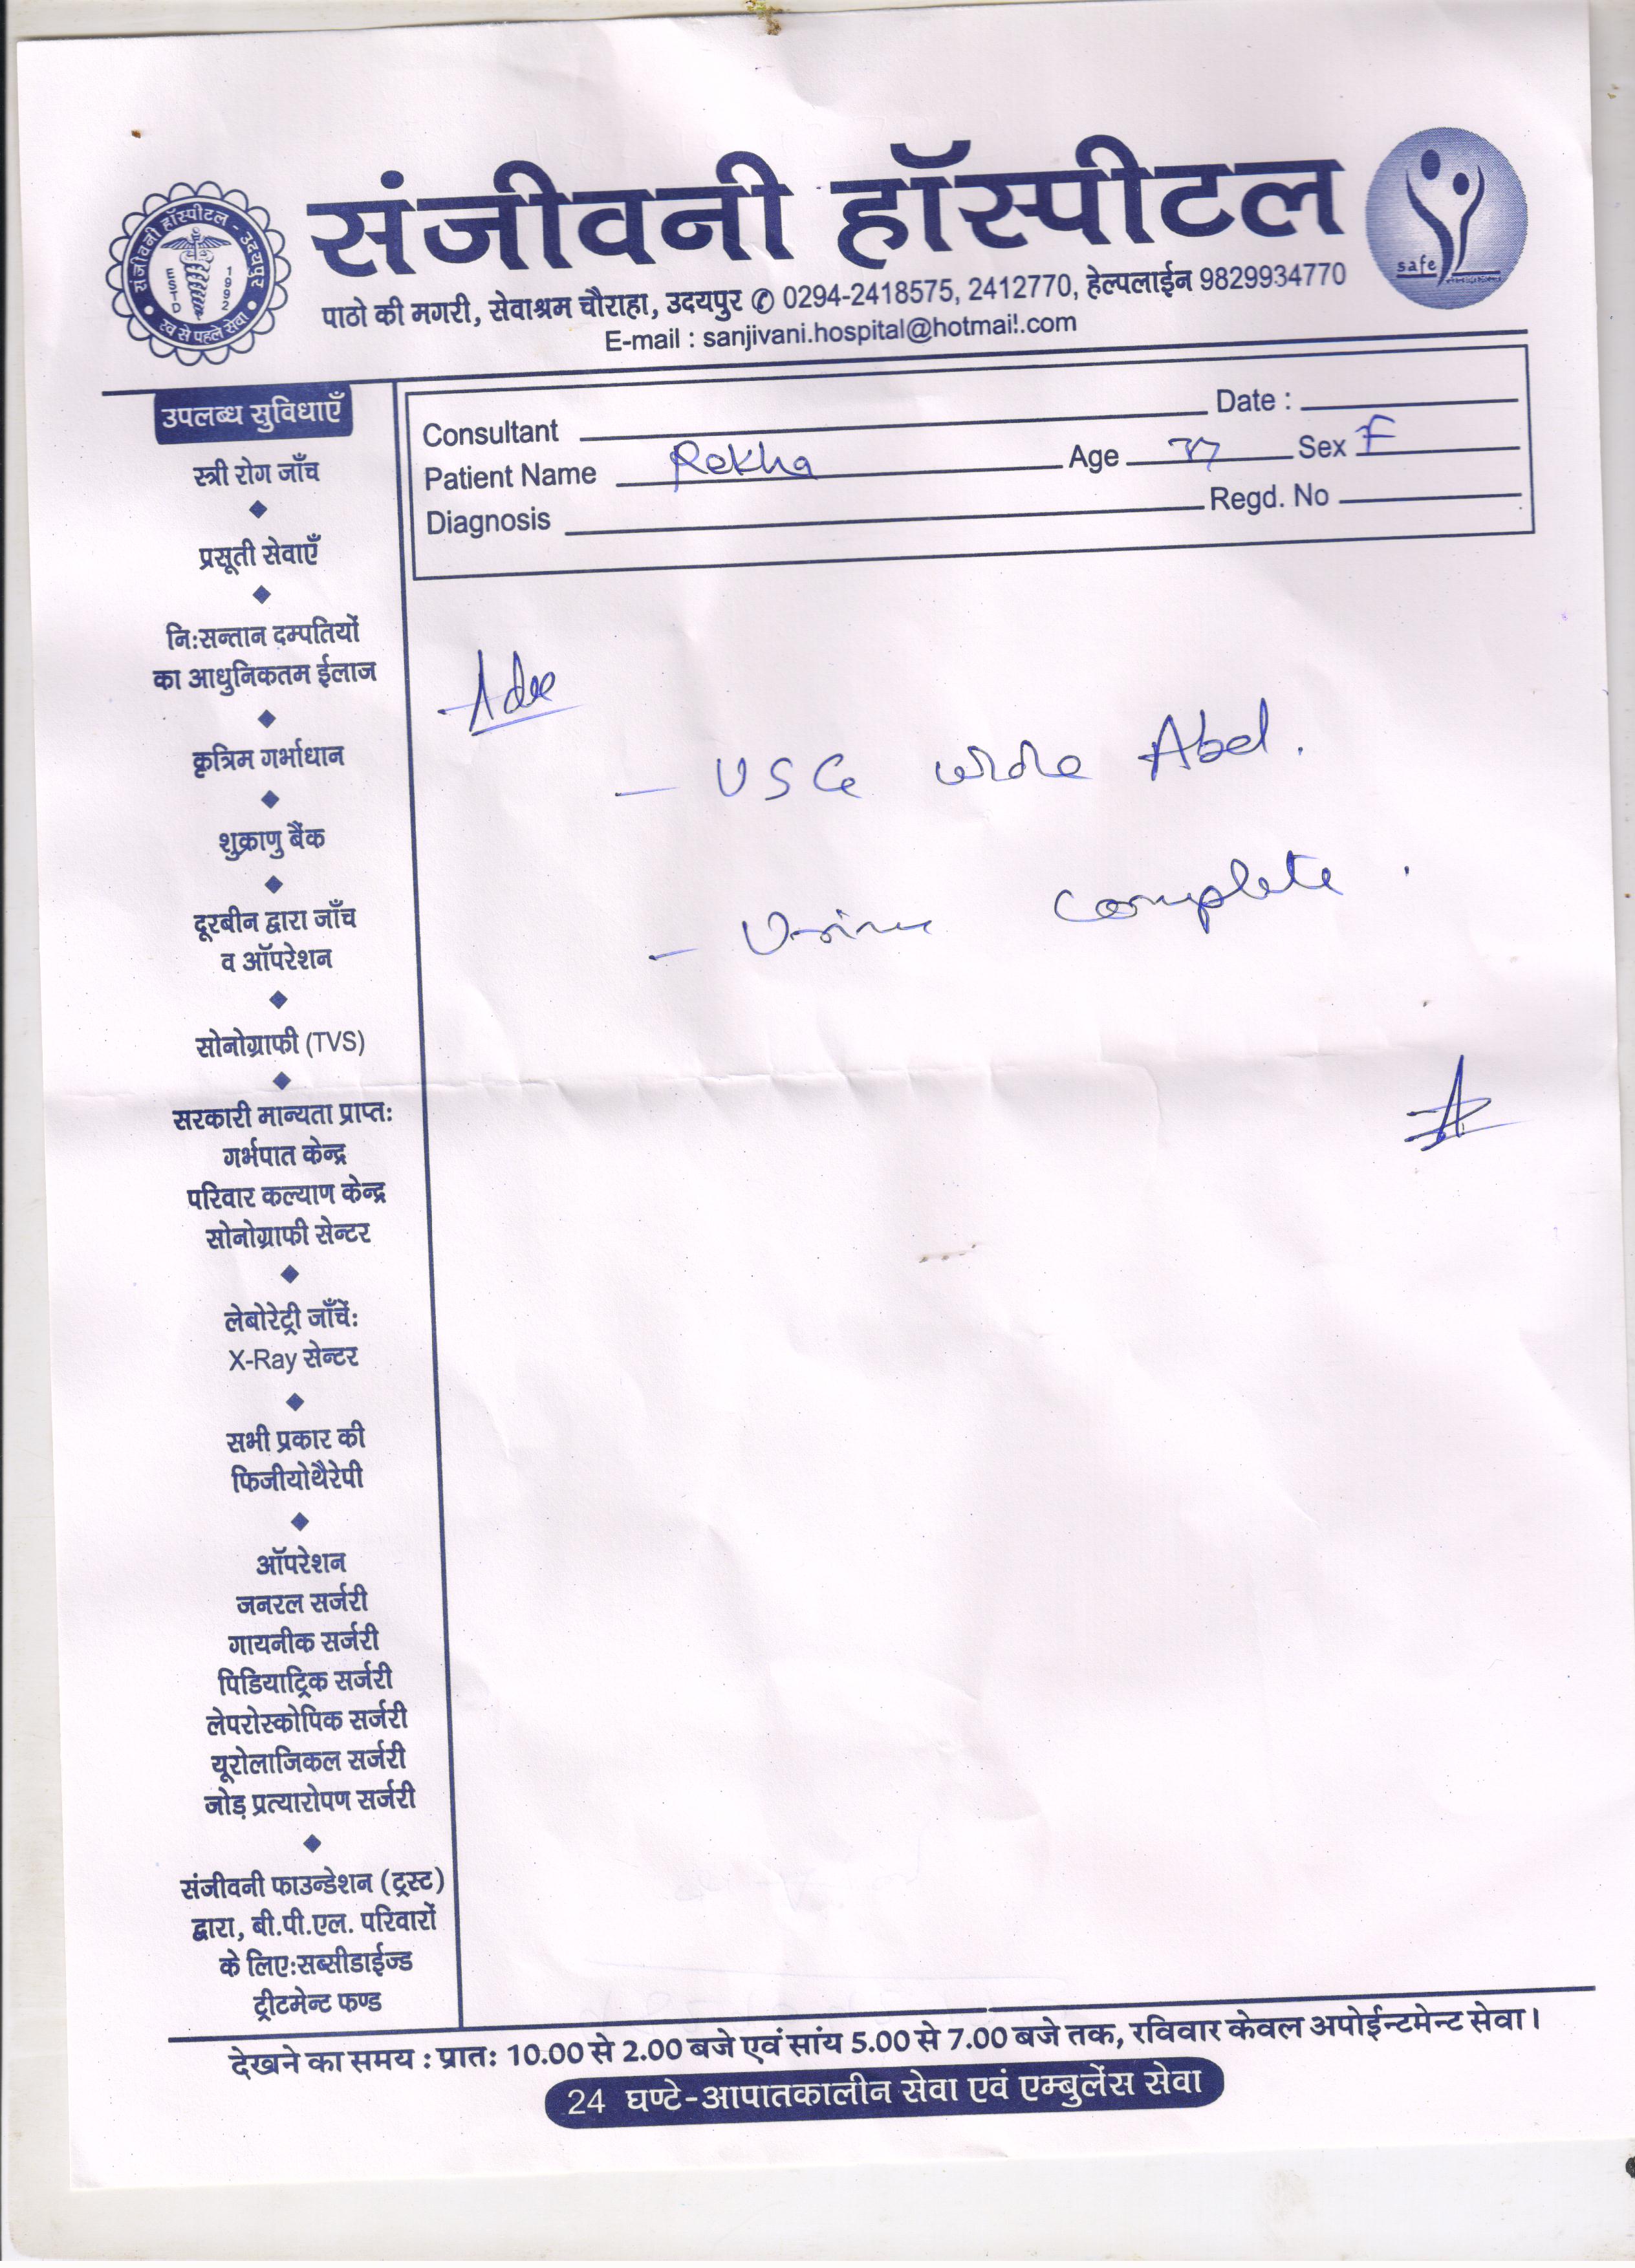 संजीवनी हॉस्पीटल
पाठो की मगरी, सेवाश्रम चौराहा, उदयपुर ✆ 0294-2418575, 2412770, हेल्पलाईन 9829934770
E-mail : sanjivani.hospital@hotmail.com
संजीवनी हॉस्पीटल - उदयपुर
ESTD 1992
स्व से पहले सेवा
safe
उपलब्ध सुविधाएँ
स्त्री रोग जाँच
प्रसूती सेवाएँ
नि:सन्तान दम्पतियों
का आधुनिकतम ईलाज
कृत्रिम गर्भाधान
शुक्राणु बैंक
दूरबीन द्वारा जाँच
व ऑपरेशन
सोनोग्राफी (TVS)
सरकारी मान्यता प्राप्त:
गर्भपात केन्द्र
परिवार कल्याण केन्द्र
सोनोग्राफी सेन्टर
लेबोरेट्री जाँचें:
X-Ray सेन्टर
सभी प्रकार की
फिजीयोथैरेपी
ऑपरेशन
जनरल सर्जरी
गायनीक सर्जरी
पिडियाट्रिक सर्जरी
लेपरोस्कोपिक सर्जरी
यूरोलाजिकल सर्जरी
जोड़ प्रत्यारोपण सर्जरी
संजीवनी फाउन्डेशन (ट्रस्ट)
द्वारा, बी.पी.एल. परिवारों
के लिए:सब्सीडाईज्ड
ट्रीटमेन्ट फण्ड
Consultant Date :
Patient Name Rekha Age 37 Sex F
Diagnosis Regd. No
Adv
- USG whole Abd.
- Urine complete.
देखने का समय : प्रात: 10.00 से 2.00 बजे एवं सांय 5.00 से 7.00 बजे तक, रविवार केवल अपोईन्टमेन्ट सेवा।
24 घण्टे-आपातकालीन सेवा एवं एम्बुलेंस सेवा